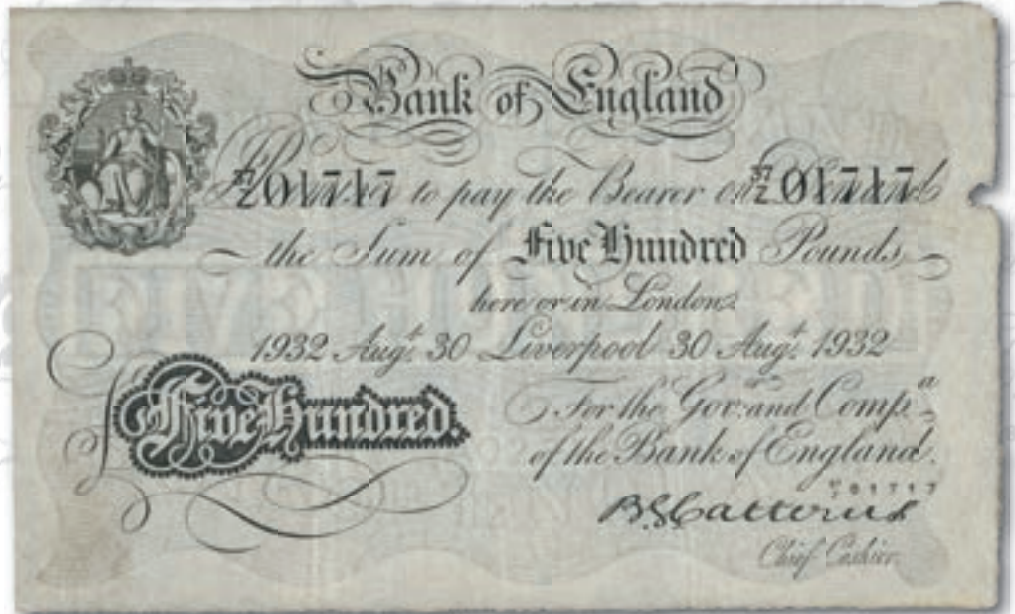 Bank of England
57/Z 01717 Promise to pay the Bearer on Demand 57/Z 01717
the Sum of Five Hundred Pounds
here or in London
1932 Augt. 30 Liverpool 30 Augt. 1932
£Five Hundred.
For the Govr. and Compa.
of the Bank of England.
01717
B.G. Catterns
Chief Cashier.